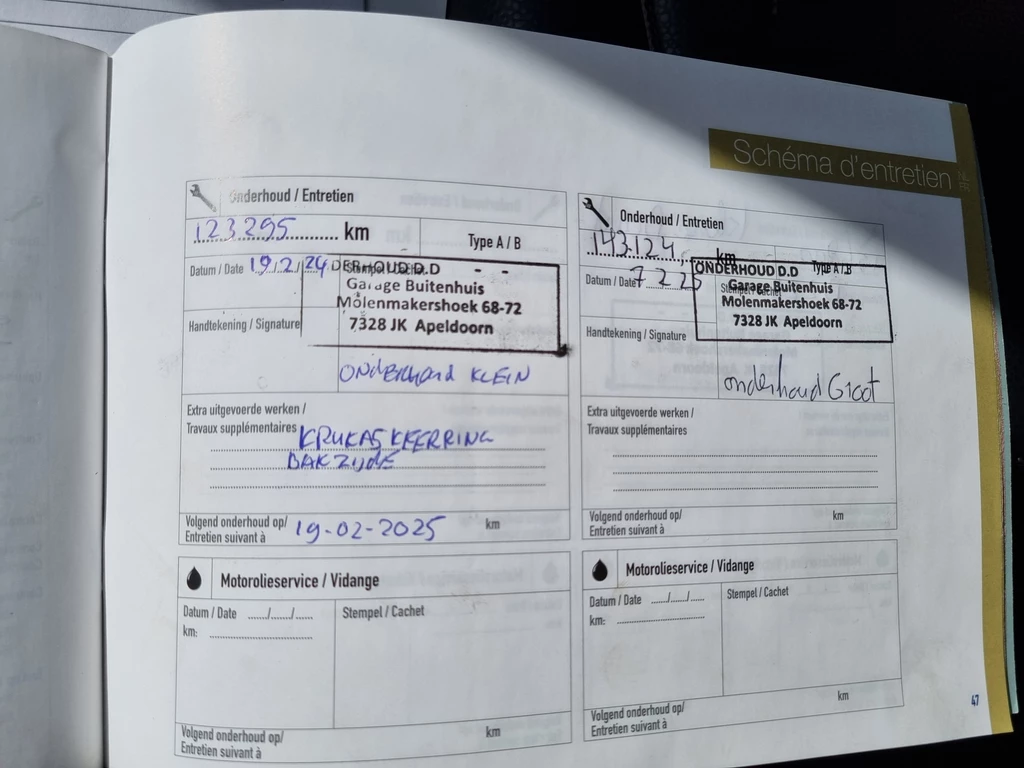 Schéma d'entretien
NL
FR
Onderhoud / Entretien
123295 km
Type A / B
Datum / Date 19/2/24
DERHOUD D.D
Garage Buitenhuis
Molenmakershoek 68-72
7328 JK Apeldoorn
Handtekening / Signature
ONDERHOUD KLEIN
Extra uitgevoerde werken /
Travaux supplémentaires
KRUKAS KEERRING
BAKZIJDE
Volgend onderhoud op/
Entretien suivant à
19-02-2025
km
Motorolieservice / Vidange
Datum / Date ...../...../.....
km:
Stempel / Cachet
Volgend onderhoud op/
Entretien suivant à
km
Onderhoud / Entretien
143.124,- km
Type A / B
Datum / Date 7 2 25
ONDERHOUD D.D
Stempel / Cachet
Garage Buitenhuis
Molenmakershoek 68-72
7328 JK Apeldoorn
Handtekening / Signature
onderhoud Groot
Extra uitgevoerde werken /
Travaux supplémentaires
Volgend onderhoud op/
Entretien suivant à
km
Motorolieservice / Vidange
Datum / Date ...../...../.....
km:
Stempel / Cachet
Volgend onderhoud op/
Entretien suivant à
km
47